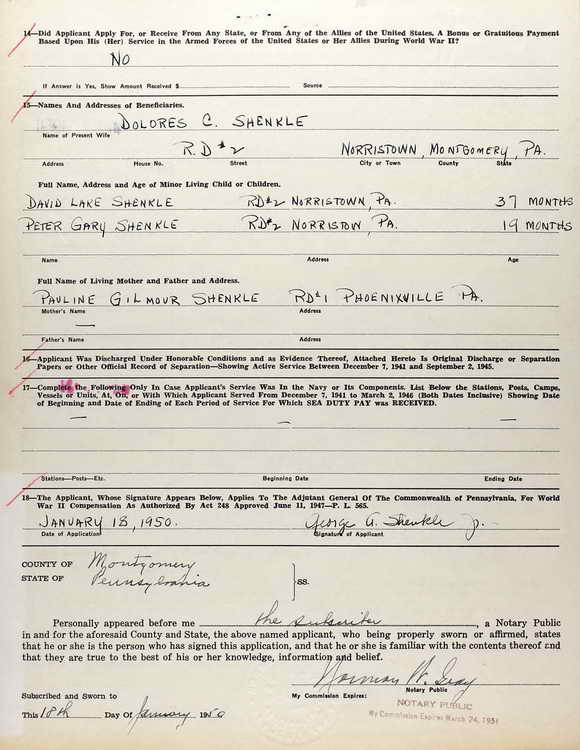 14—Did Applicant Apply For, or Receive From Any State, or From Any of the Allies of the United States, A Bonus or Gratuitous Payment
Based Upon His (Her) Service in the Armed Forces of the United States or Her Allies During World War II?
NO
If Answer is Yes, Show Amount Received $ Source
15—Names And Addresses of Beneficiaries.
DOLORES C. SHENKLE
Name of Present Wife
R.D #2 NORRISTOWN, MONTGOMERY, PA.
Address House No. Street City or Town County State
Full Name, Address and Age of Minor Living Child or Children.
DAVID LAKE SHENKLE RD#2 NORRISTOWN, PA. 37 MONTHS
PETER GARY SHENKLE RD#2 NORRISTOW, PA. 19 MONTHS
Name Address Age
Full Name of Living Mother and Father and Address.
PAULINE GILMOUR SHENKLE RD#1 PHOENIXVILLE PA.
Mother's Name Address
—
Father's Name Address
16—Applicant Was Discharged Under Honorable Conditions and as Evidence Thereof, Attached Hereto Is Original Discharge or Separation
Papers or Other Official Record of Separation—Showing Active Service Between December 7, 1941 and September 2, 1945.
17—Complete the Following Only In Case Applicant's Service Was In the Navy or Its Components. List Below the Stations, Posts, Camps,
Vessels or Units, At, On, or With Which Applicant Served From December 7, 1941 to March 2, 1946 (Both Dates Inclusive) Showing Date
of Beginning and Date of Ending of Each Period of Service For Which SEA DUTY PAY was RECEIVED.
— — —
Stations—Posts—Etc. Beginning Date Ending Date
18—The Applicant, Whose Signature Appears Below, Applies To The Adjutant General Of The Commonwealth of Pennsylvania, For World
War II Compensation As Authorized By Act 248 Approved June 11, 1947—P. L. 565.
JANUARY 18, 1950. George A. Shenkle Jr.
Date of Application Signature of Applicant
COUNTY OF Montgomery
STATE OF Pennsylvania }SS.
Personally appeared before me the subscriber, a Notary Public
in and for the aforesaid County and State, the above named applicant, who being properly sworn or affirmed, states
that he or she is the person who has signed this application, and that he or she is familiar with the contents thereof and
that they are true to the best of his or her knowledge, information and belief.
Norman W. Gray
Subscribed and Sworn to My Commission Expires: Notary Public
NOTARY PUBLIC
This 18th Day Of January 1950 My Commission Expires March 24, 1951